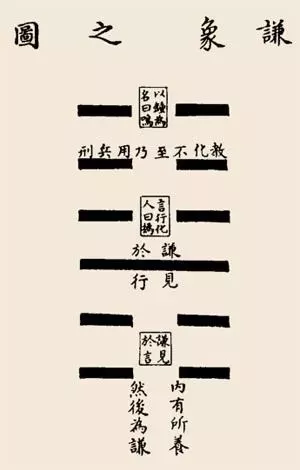 謙象之圖
以為
名曰鳴
教化不至乃用兵刑
言行化
人曰撝
謙見
於行
謙見
於言
內有所養
然後為謙